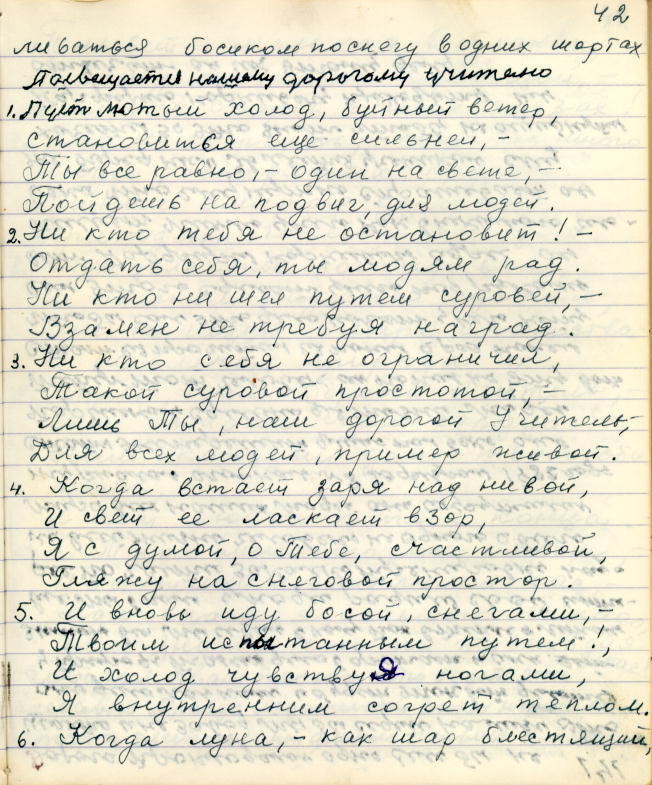 42
ливаться босиком по снегу в одних шортах
Посвещается нашему дорогому учителю
1. Пусть лютый холод, буйный ветер,
становиться еще сильней, –
Ты все равно, – один на свете, –
Пойдешь на подвиг, для людей.
2. Ни кто тебя не остановит! –
Отдать себя, ты людям рад.
Ни кто ни шел путем суровей, –
Взамен не требуя наград.
3. Ни кто себя не ограничил,
Такой суровой простотой, –
Лишь Ты, наш дорогой Учитель, –
Для всех людей, пример живой.
4. Когда встает заря над нивой,
И свет ее ласкает взор,
Я с думой, о Тебе, счастливой,
Гляжу на снеговой простор.
5. И вновь иду босой, снегами, –
Твоим испытанным путем!,
И холод чувствуя ногами,
Я внутренним согрет теплом.
6. Когда луна, – как шар блестящий,